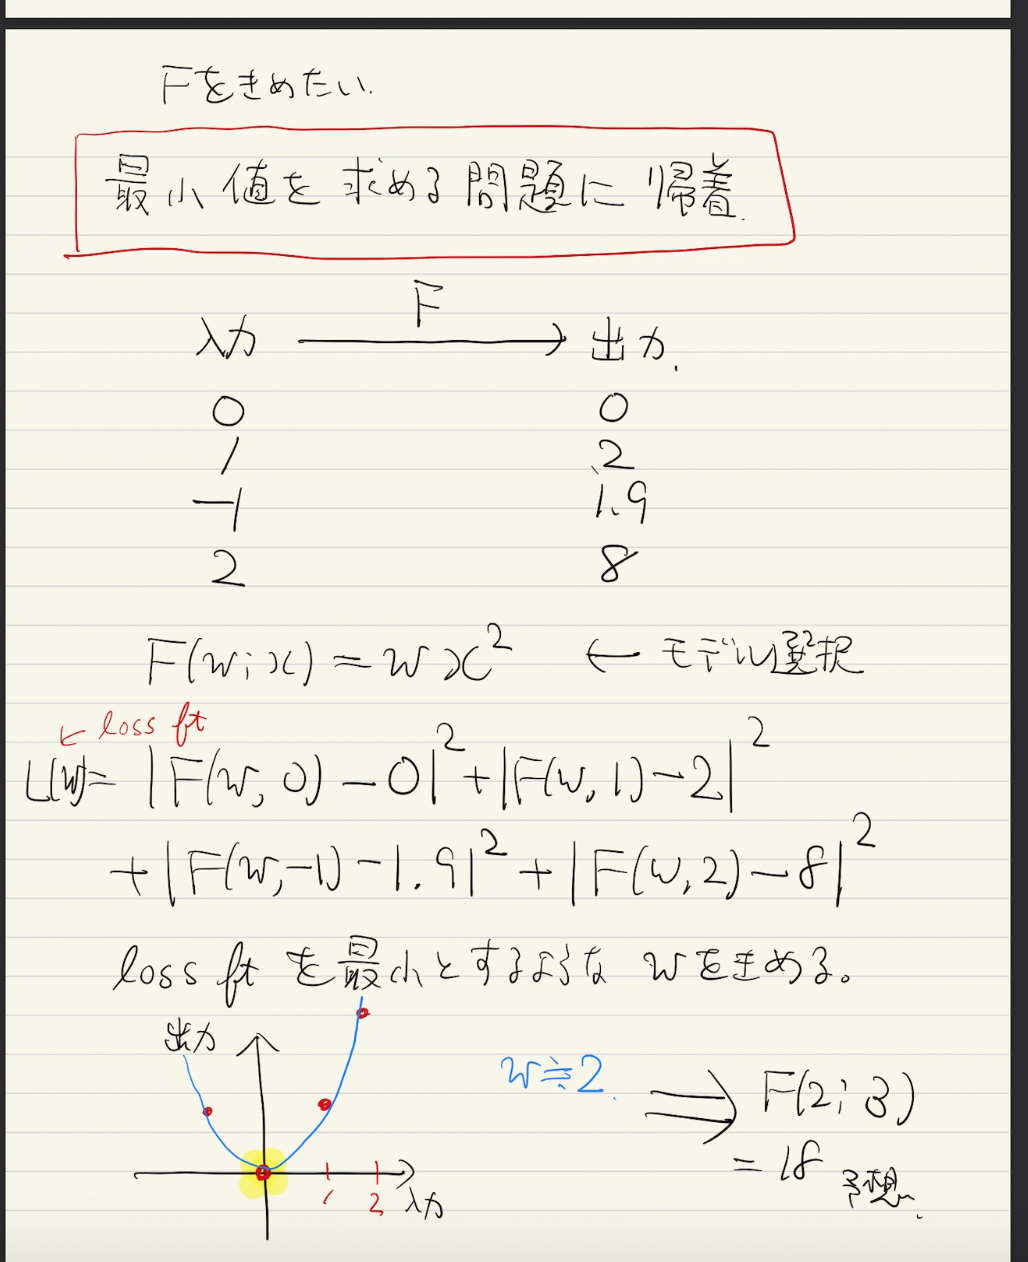 Fをきめたい.
最小値を求める問題に帰着.
F
入力 → 出力.
0 0
1 2
-1 1.9
2 8
F(w; x) = wx² ← モデル選択
← loss ft
L(w)= |F(w, 0) - 0|² + |F(w, 1) - 2|²
+ |F(w, -1) - 1.9|² + |F(w, 2) - 8|²
loss ft を最小とするような w をきめる。
出力
w≒2. ⟹ F(2; 3)
= 18 予想.
1 2 入力